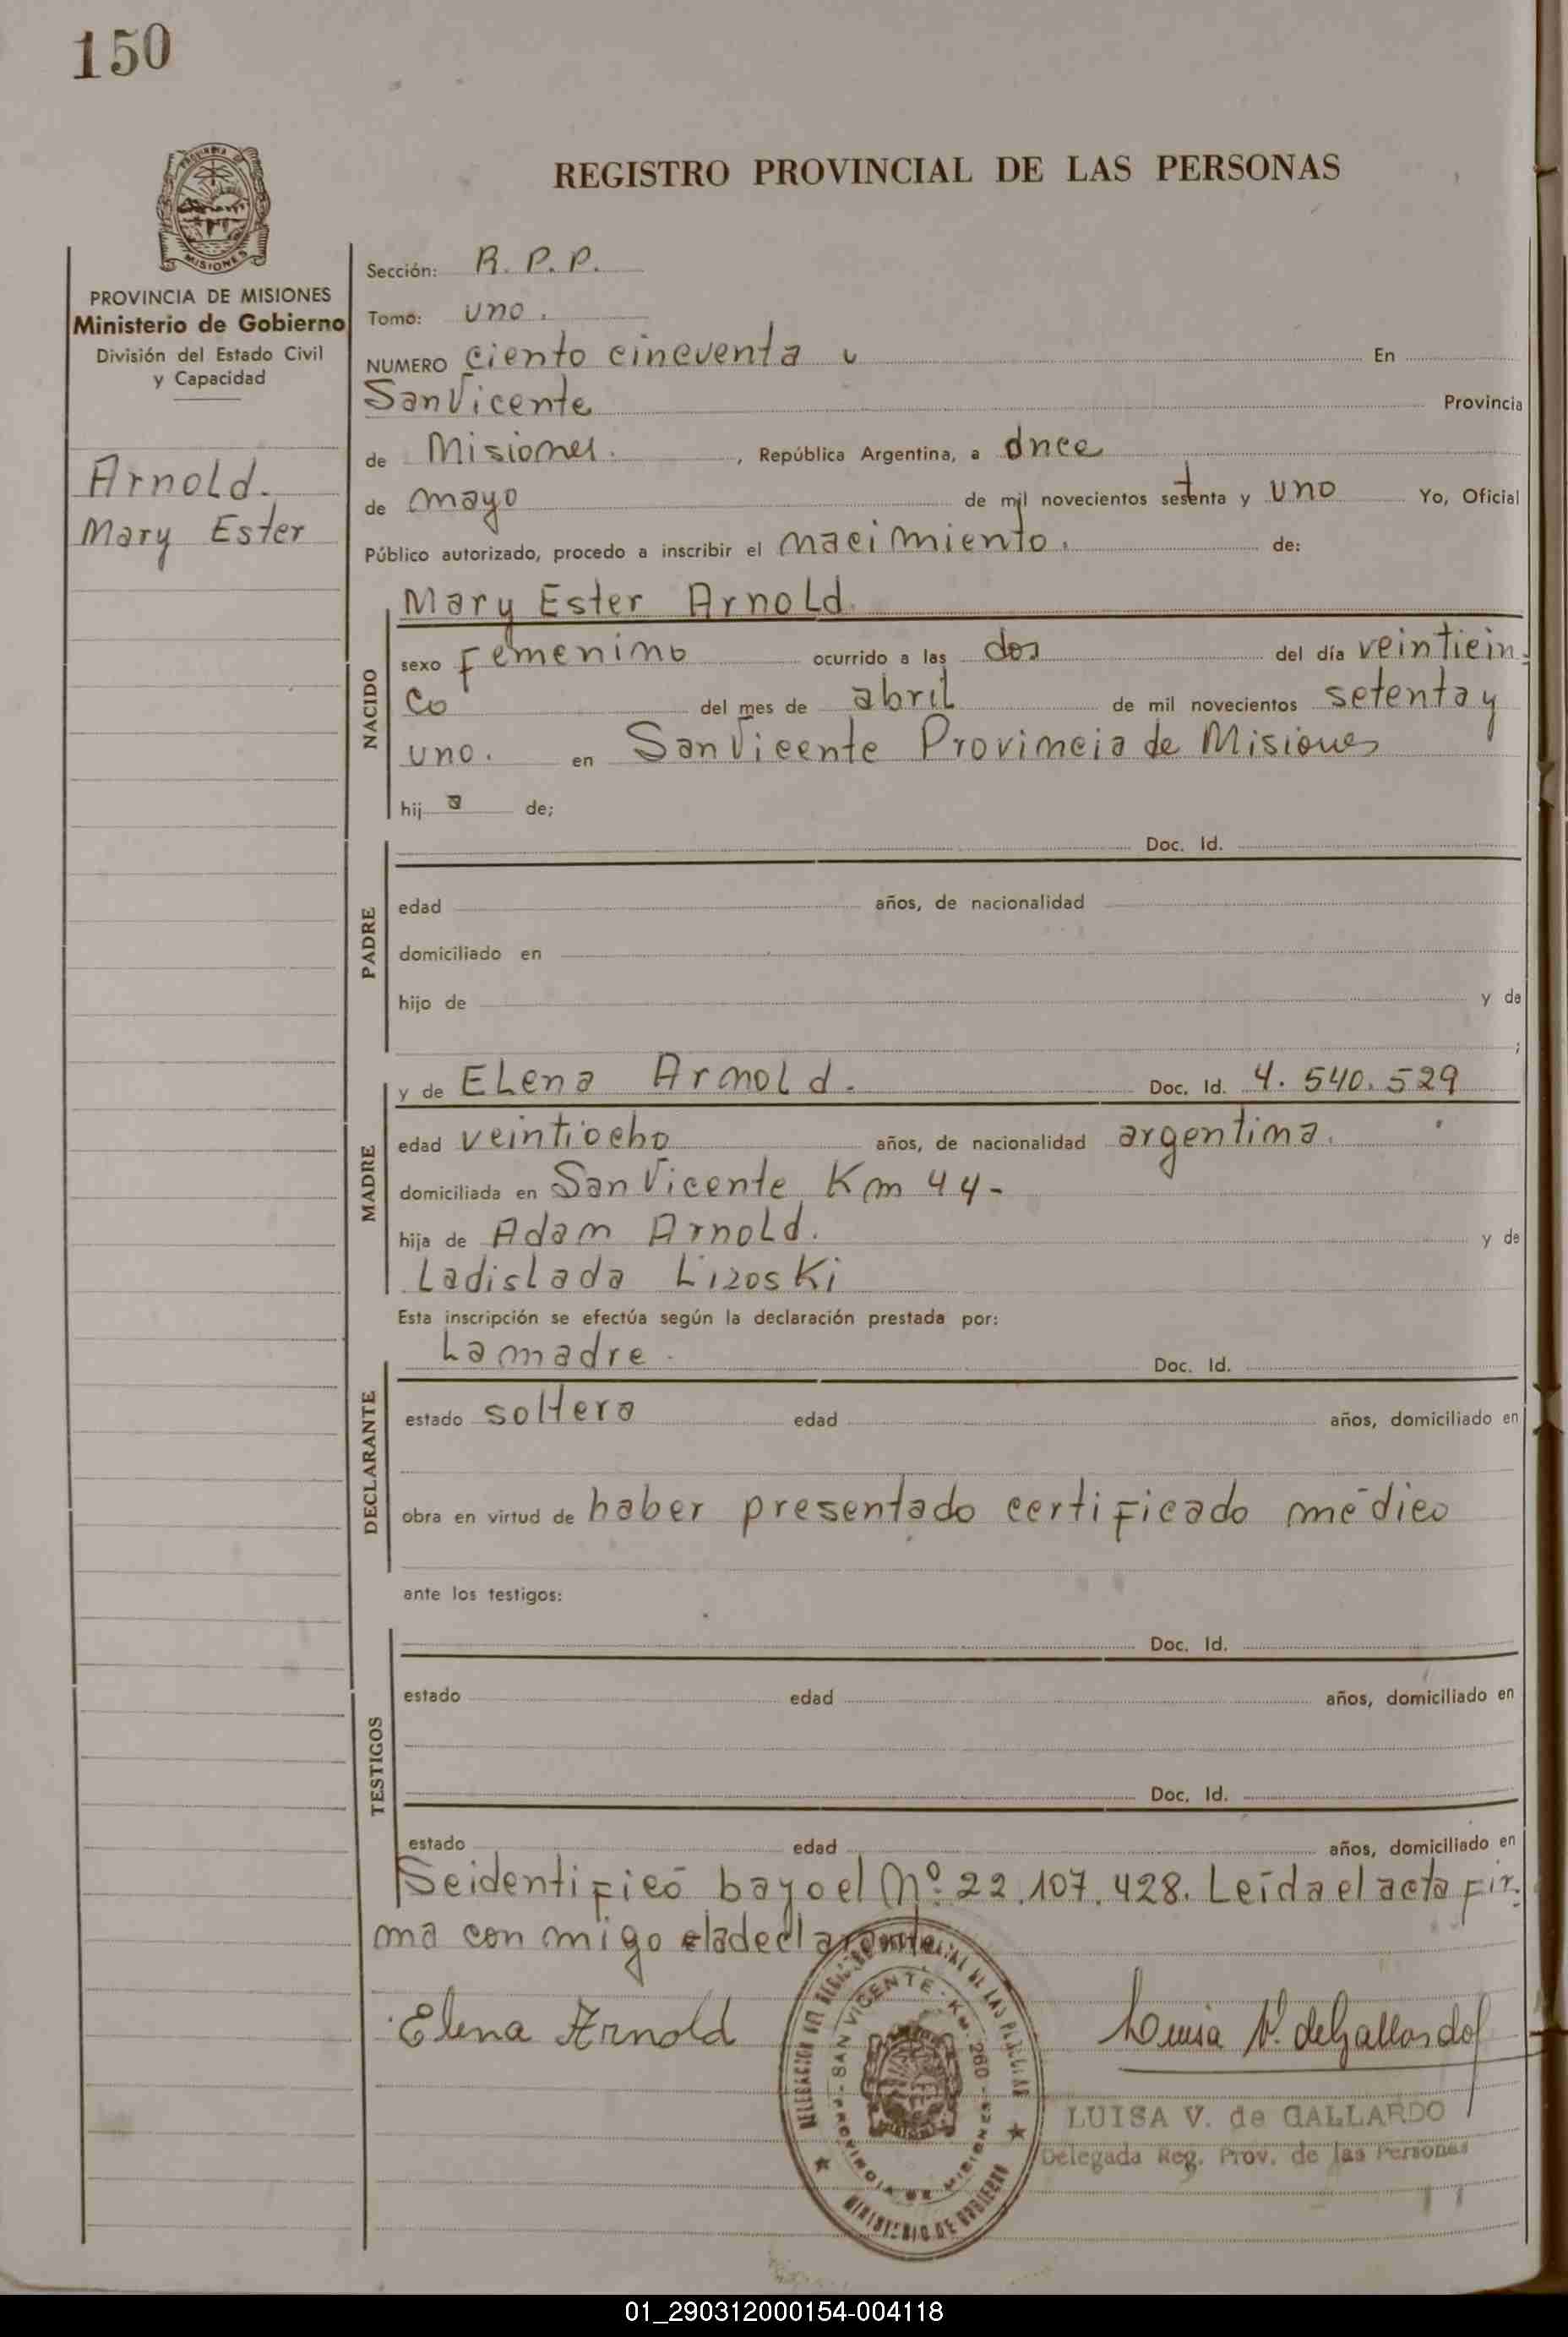 150
REGISTRO PROVINCIAL DE LAS PERSONAS
MISIONES
PROVINCIA DE MISIONES
Ministerio de Gobierno
División del Estado Civil
y Capacidad
Arnold.
Mary Ester
Sección: R. P. P.
Tomo: uno.
NUMERO ciento cincuenta En
San Vicente Provincia
de Misiones. , República Argentina, a once
de mayo de mil novecientos setenta y uno Yo, Oficial
Público autorizado, procedo a inscribir el nacimiento. de:
Mary Ester Arnold.
NACIDO
sexo Femenino ocurrido a las dos del día veinticin-
co del mes de abril de mil novecientos setenta y
uno. en San Vicente Provincia de Misiones
hij a de;
Doc. Id.
PADRE
edad años, de nacionalidad
domiciliado en
hijo de y de
;
y de Elena Arnold. Doc. Id. 4. 540. 529
MADRE
edad veintiocho años, de nacionalidad argentina.
domiciliada en San Vicente Km 44-
hija de Adam Arnold. y de
Ladislada Lizoski
Esta inscripción se efectúa según la declaración prestada por:
La madre. Doc. Id.
DECLARANTE
estado soltera edad años, domiciliado en
obra en virtud de haber presentado certificado médico
ante los testigos:
Doc. Id.
TESTIGOS
estado edad años, domiciliado en
Doc. Id.
estado edad años, domiciliado en
Se identificó bayo el Nº 22.107.428. Leída el acta fir-
ma con migo eladeclarante
Elena Arnold
Luisa V. de Gallardo
SAN VICENTE - KM. 260 - PROVINCIA DE MISIONES
MINISTERIO DE GOBIERNO
LUISA V. de GALLARDO
Delegada Reg. Prov. de las Personas
01_290312000154-004118